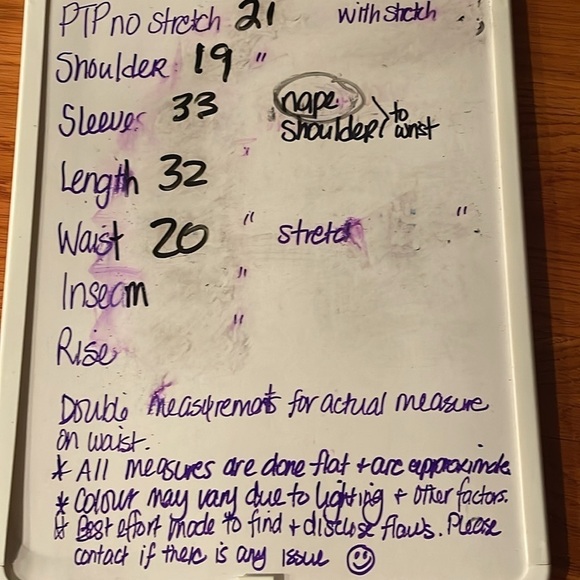 PTP no stretch 21 with stretch
Shoulder 19 "
Sleeves 33 nape
shoulder > to wrist
Length 32 "
Waist 20 " stretch "
Inseam "
Rise "
Double measurements for actual measure
on waist.
* All measures are done flat + are approximate
* Colour may vary due to lighting + other factors.
* Best effort made to find + disclose flaws. Please
contact if there is any issue ☺